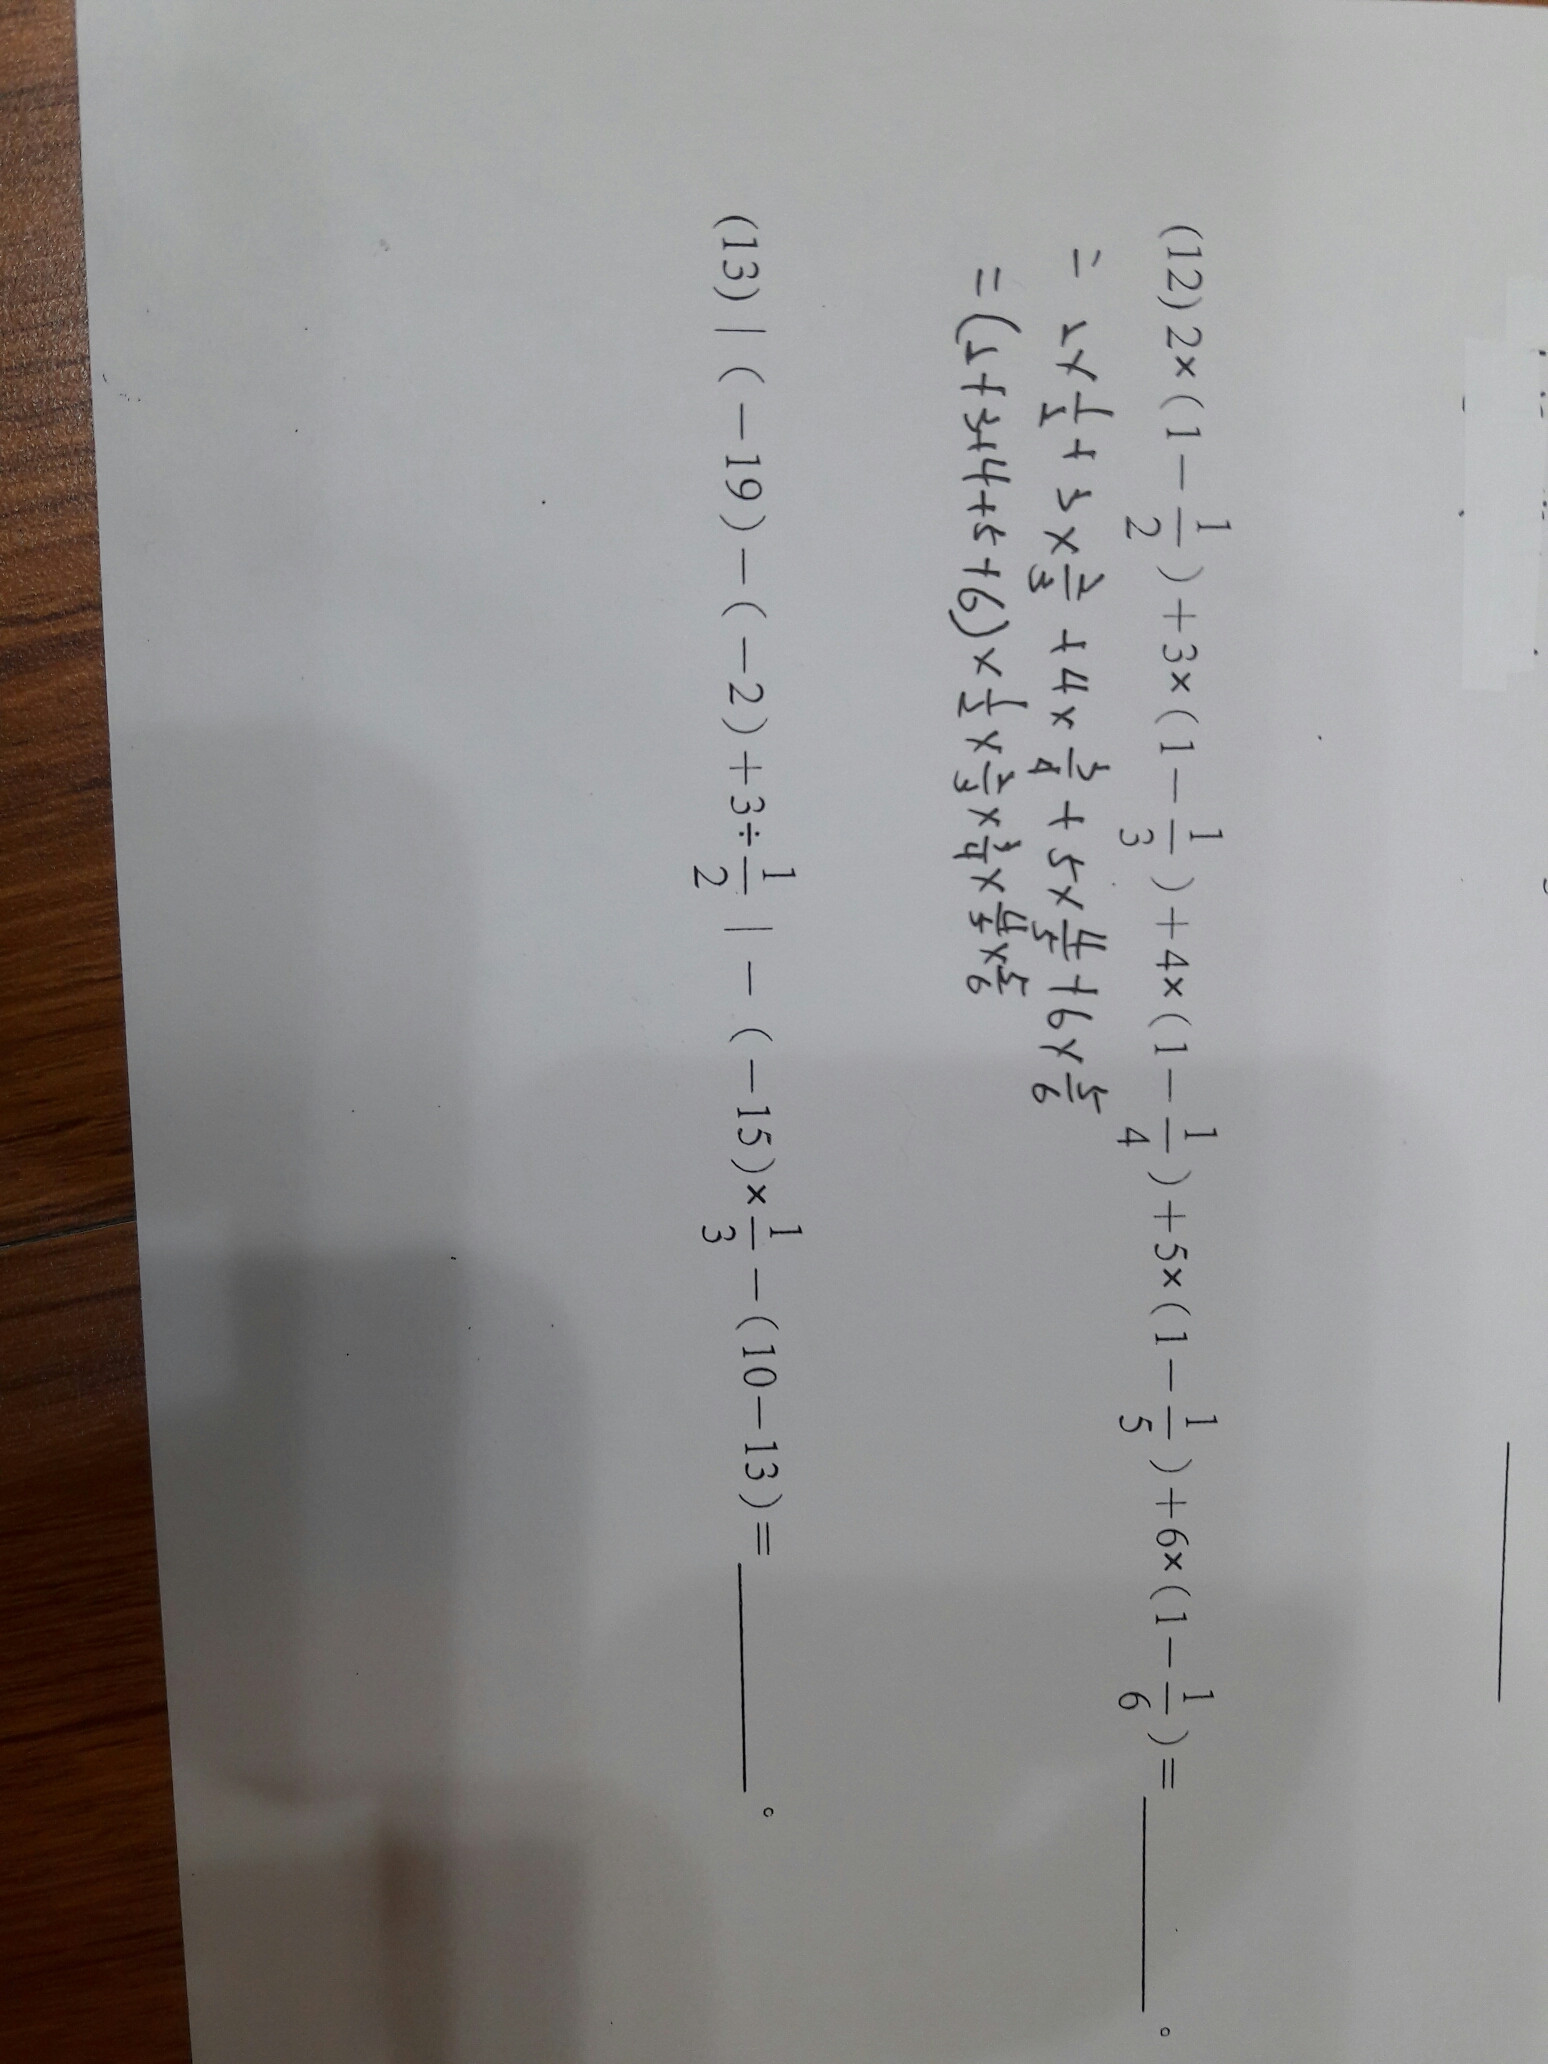 (12) 2×(1-1/2)+3×(1-1/3)+4×(1-1/4)+5×(1-1/5)+6×(1-1/6)=______。
= 2×1/2+3×2/3+4×3/4+5×4/5+6×5/6
=(2+3+4+5+6)×1/2×2/3×3/4×4/5×5/6
(13) |(-19)-(-2)+3÷1/2|-(-15)×1/3-(10-13)=______。